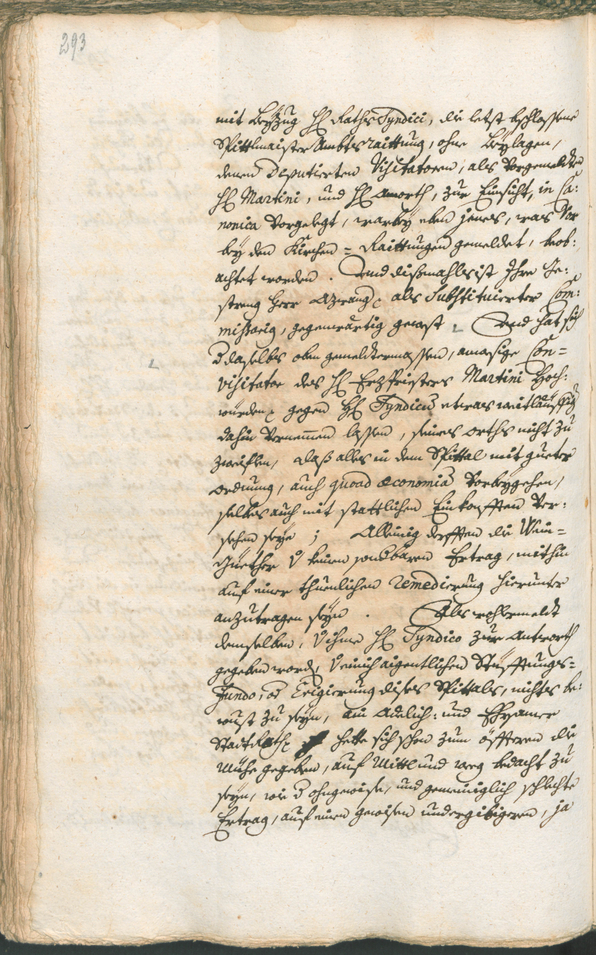 293
mit Beyzug H: Raths Syndici, die letst beschlossene
Spittlmaister Ambts raittung, ohne beylagen,
denen Deputierten Visitatoren, als vorgemeldten
HH: Martini, und H: Amorth, zur Einsicht, in Ca:
nonica vorgelegt, warbey eben jenes, was vor
bey den Kirchen = Raittungen gemeldet, beob:
achtet worden. Und dißmahls ist Ihro Ge:
streng Herr als Substituierter Com:
missarig, gegenwärtig gewest Und hat sich
daselbst oben gemeldtermassen, Con=
visitator des H: Erzpriesters Martini Hoch:
würden gegen H: Syndicus etwas weitläuffig
dahin vernemmen lassen, seines orths nicht zu
zweiflen, daß alles in dem Spittal mit gueter
ordnung, auch quoad oeconomia vorbeygehen,
selbes auch mit stattlichen Einkonfften ver:
sehen seye; Alleinig derfften die Wein=
Güether keinen sonderbaren Ertrag, mithin
auf einer thuenlichen remedierung hierunter
anzutragen seyn. Als wohlermeldt
demselben, Ihme H: Syndico zur Antworth
gegeben word, aigentlichen Stüfftungs=
Fundo, od Erigierung dises Spittals, nichts be:
wust zu seyn, ein Adelich: und Ehrsamer
Stattrath hette sich schon zum öffteren die
Mühe gegeben, auf Mittl und weeg bedacht zu
seyn, wie d ohngewise, und gemeiniglich schlechte
Ertrag, auf einen gewisen und ergibigeren, ja